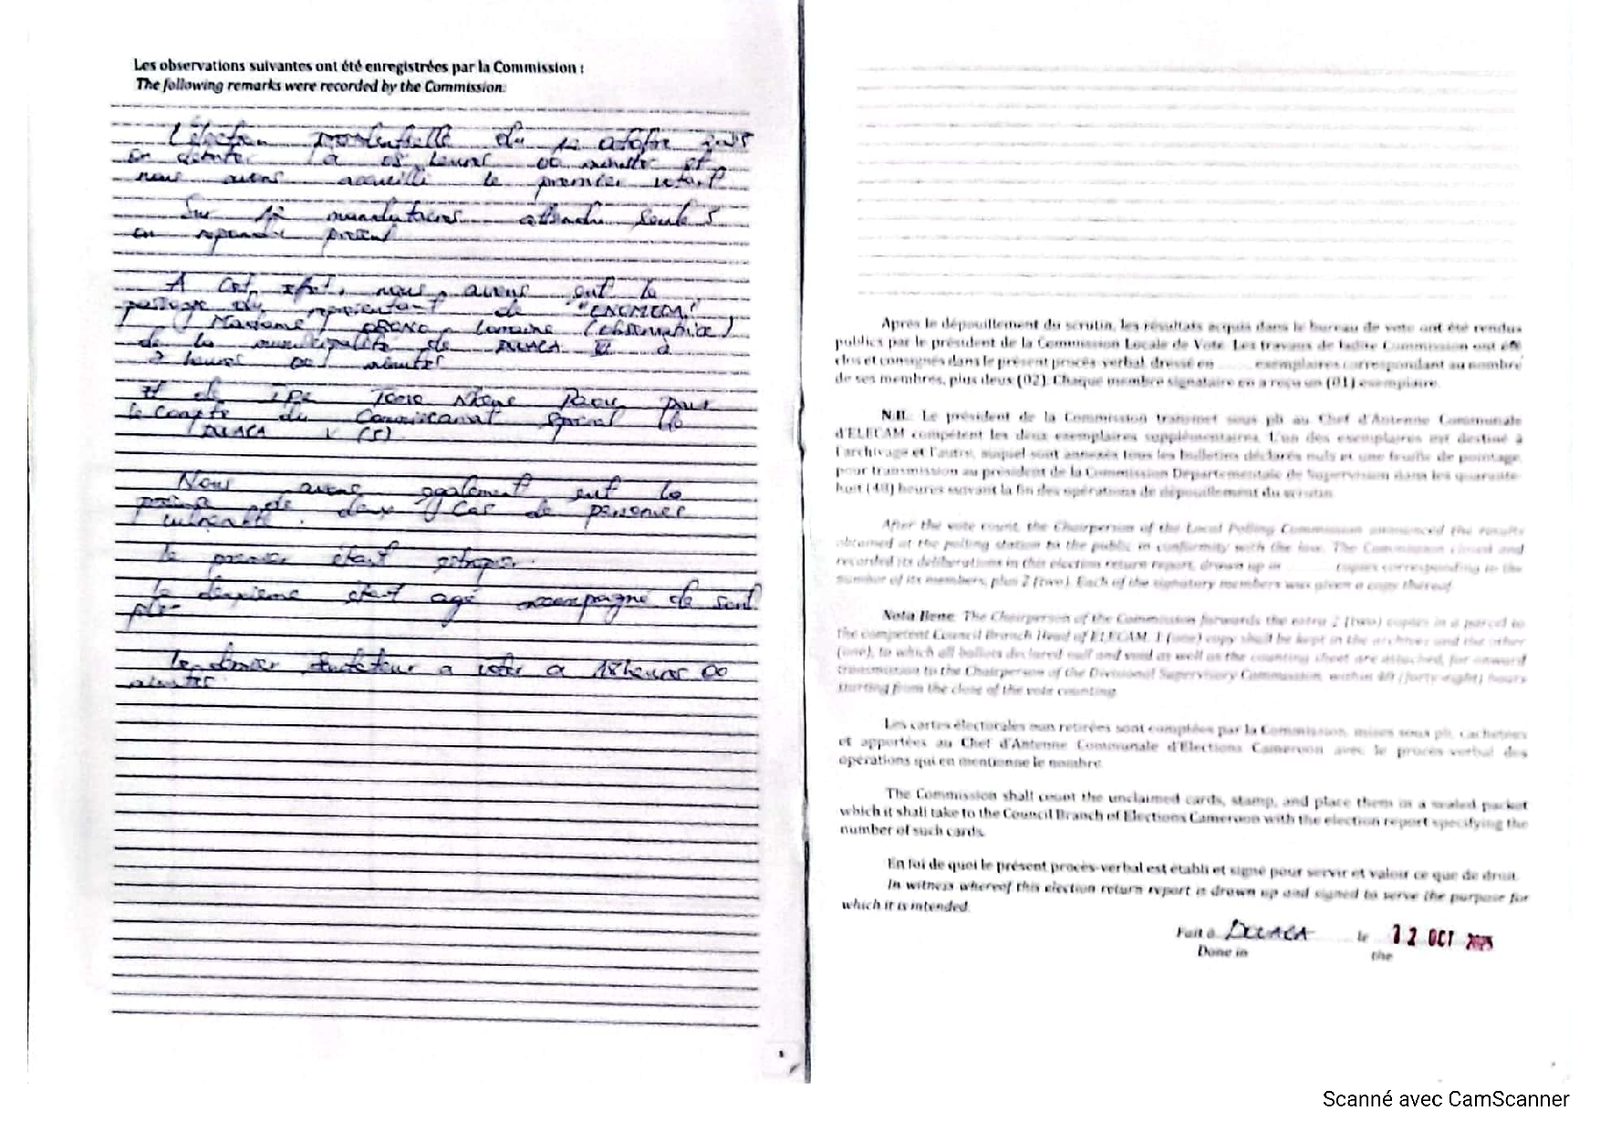 Les observations suivantes ont été enregistrées par la Commission :
The following remarks were recorded by the Commission:
L'élection présidentielle du 12 octobre 2025
a débuté à 08 heures 00 minutes et
nous avons accueilli le premier votant
Sur 12 mandataires attendus seuls 5
en reponse présent
A cet effet, nous avons eut le
passage du représentant de
Madame Lorraine (observatrice)
de la municipalité de DOUALA à
heures 00 minutes
Et de pour
le compte du Commissariat Spécial de
DOUALA
Nous avons également eut le
passage de deux cas de personnes
vulnérable.
le premier étant
le deuxième étant agé accompagné de sont
le dernier a voter a 18 heures 00
minutes
Après le dépouillement du scrutin, les résultats acquis dans le bureau de vote ont été rendus
publics par le président de la Commission Locale de Vote. Les travaux de ladite Commission ont été
clos et consignés dans le présent procès-verbal dressé en exemplaires correspondant au nombre
de ses membres, plus deux (02). Chaque membre signataire en a reçu un (01) exemplaire.
N.B. Le président de la Commission transmet sous pli au Chef d'Antenne Communale
d'ELECAM compétent les deux exemplaires supplémentaires. L'un des exemplaires est destiné à
l'archivage et l'autre, auquel sont annexés tous les bulletins déclarés nuls et une feuille de pointage,
pour transmission au président de la Commission Départementale de Supervision dans les quarante-
huit (48) heures suivant la fin des opérations de dépouillement du scrutin.
After the vote count, the Chairperson of the Local Polling Commission announced the results
obtained at the polling station to the public in conformity with the law. The Commission closed and
recorded its deliberations in this election return report, drawn up in copies corresponding to the
number of its members, plus 2 (two). Each of the signatory members was given a copy thereof.
Nota Bene: The Chairperson of the Commission forwards the extra 2 (two) copies in a parcel to
the competent Council Branch Head of ELECAM. 1 (one) copy shall be kept in the archives and the other
(one), to which all ballots declared null and void as well as the counting sheet are attached, for onward
transmission to the Chairperson of the Divisional Supervisory Commission, within 48 (forty-eight) hours
starting from the close of the vote counting.
Les cartes électorales non retirées sont comptées par la Commission, mises sous pli, cachetées
et apportées au Chef d'Antenne Communale d'Elections Cameroon avec le procès-verbal des
opérations qui en mentionne le nombre.
The Commission shall count the unclaimed cards, stamp, and place them in a sealed packet
which it shall take to the Council Branch of Elections Cameroon with the election report specifying the
number of such cards.
En foi de quoi le présent procès-verbal est établi et signé pour servir et valoir ce que de droit.
In witness whereof this election return report is drawn up and signed to serve the purpose for
which it is intended.
Fait à DOUALA le 12 OCT 2025
Done in the
Scanné avec CamScanner